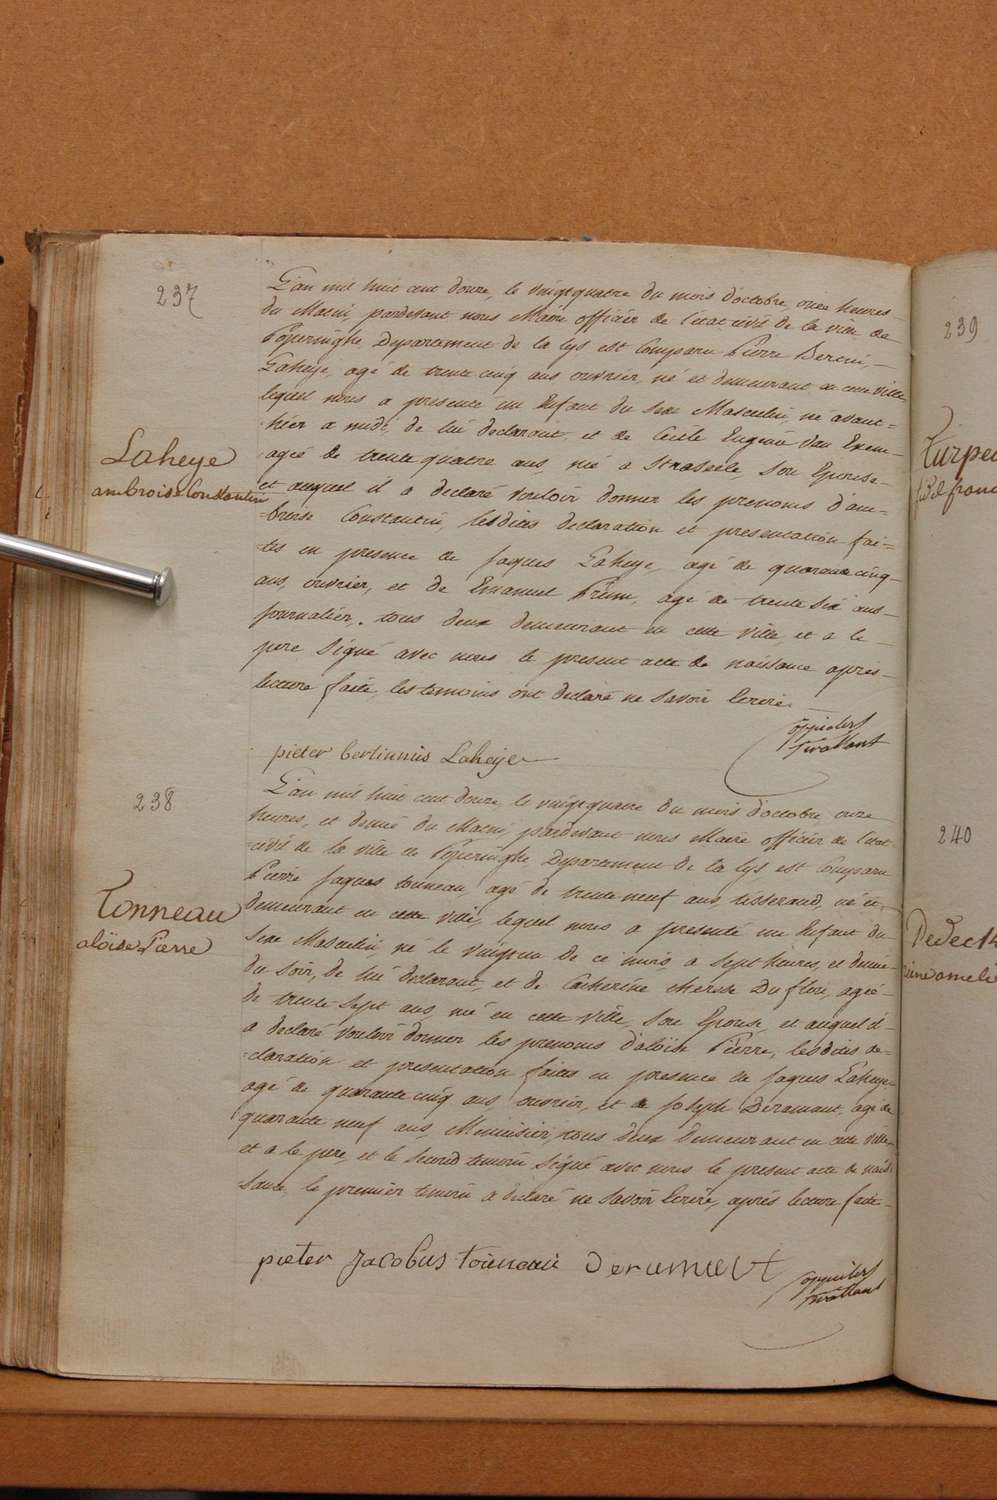 237
L'an mil huit cent douze, le vingtquatre du mois d'octobre onze heures
du Matin, pardevant nous Maire officier de l'état civil de la ville de
Poperinghe Departement de la Lys est Comparu Pierre Bertin,
Laheye, agé de trente cinq ans ouvrier, né et demeurant en cette ville
lequel nous a presenté un Enfant du sexe Masculin, né avant=
=hier a midi, de lui declarant, et de Cecile Eugenie Van
agée de trente quatre ans, née a Strazeele, Son Epouse
et auquel il a declaré vouloir donner les prenoms d'am=
=broise Constantin, lesdites declaration et presentation fai=
=tes en presence de Jaques Laheye, agé de quarante cinq
ans, ouvrier, et de Emanuel Prum, agé de trente six ans
journalier, tous deux demeurant en cette ville, et a le
pere Signé avec nous le present acte de naissance apres
lecture faite, les temoins ont declaré ne savoir Ecrire.
Laheye
ambroise Constantin
pieter bertinnus Laheye
238
L'an mil huit cent douze, le vingtquatre du mois d'octobre onze
heures, et demie du Matin, pardevant nous Maire officier de l'état
=civil de la ville de Poperinghe, Departement de la Lys est Comparu
Pierre Jaques tonneau, agé de trente neuf ans, tisserand, né et
demeurant en cette ville, lequel nous a presenté un Enfant du
Sexe Masculin, né le vingtun de ce mois a Sept heures, et demie
du Soir, de lui declarant, et de Catherine therese Duflou, agée
de trente Sept ans, née en cette ville, Son Epouse, et auquel il
a declaré vouloir donner les prenoms d'aloïse Pierre, lesdites de=
=claration et presentation faites en presence de Jaques Laheye
agé de quarante cinq ans, ouvrier, et de Joseph Deramaut, agé de
quarante neuf ans, Menuisier, tous deux demeurant en cette ville
et a le pere, et le second temoin Signé avec nous le present acte de nais
=sance, le premier temoin a declaré ne savoir Ecrire, après lecture faite
Tonneau
aloïse Pierre
pieter Jacobus
239
240